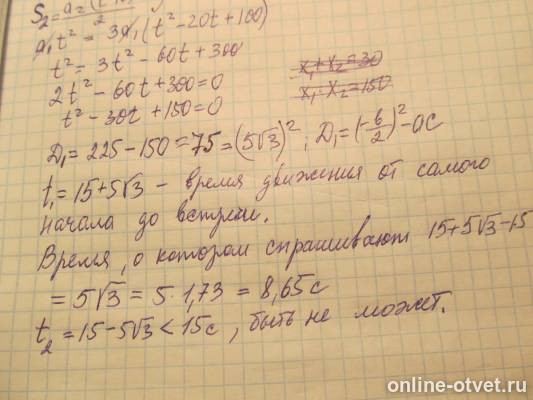 S₂ = a₂(t
a₁t² = 3a₁(t² - 20t + 100)
t² = 3t² - 60t + 300
2t² - 60t + 300 = 0
t² - 30t + 150 = 0
x₁ + x₂ = 30
x₁ · x₂ = 150
D₁ = 225 - 150 = 75 = (5√3)²; D₁ = (-b/2)² - ac
t₁ = 15 + 5√3 - время движения от самого
начала до встречи.
Время, о котором спрашивают 15 + 5√3 - 15
= 5√3 = 5 · 1,73 = 8,65 с
t₂ = 15 - 5√3 < 15 с, быть не может.
online-otvet.ru